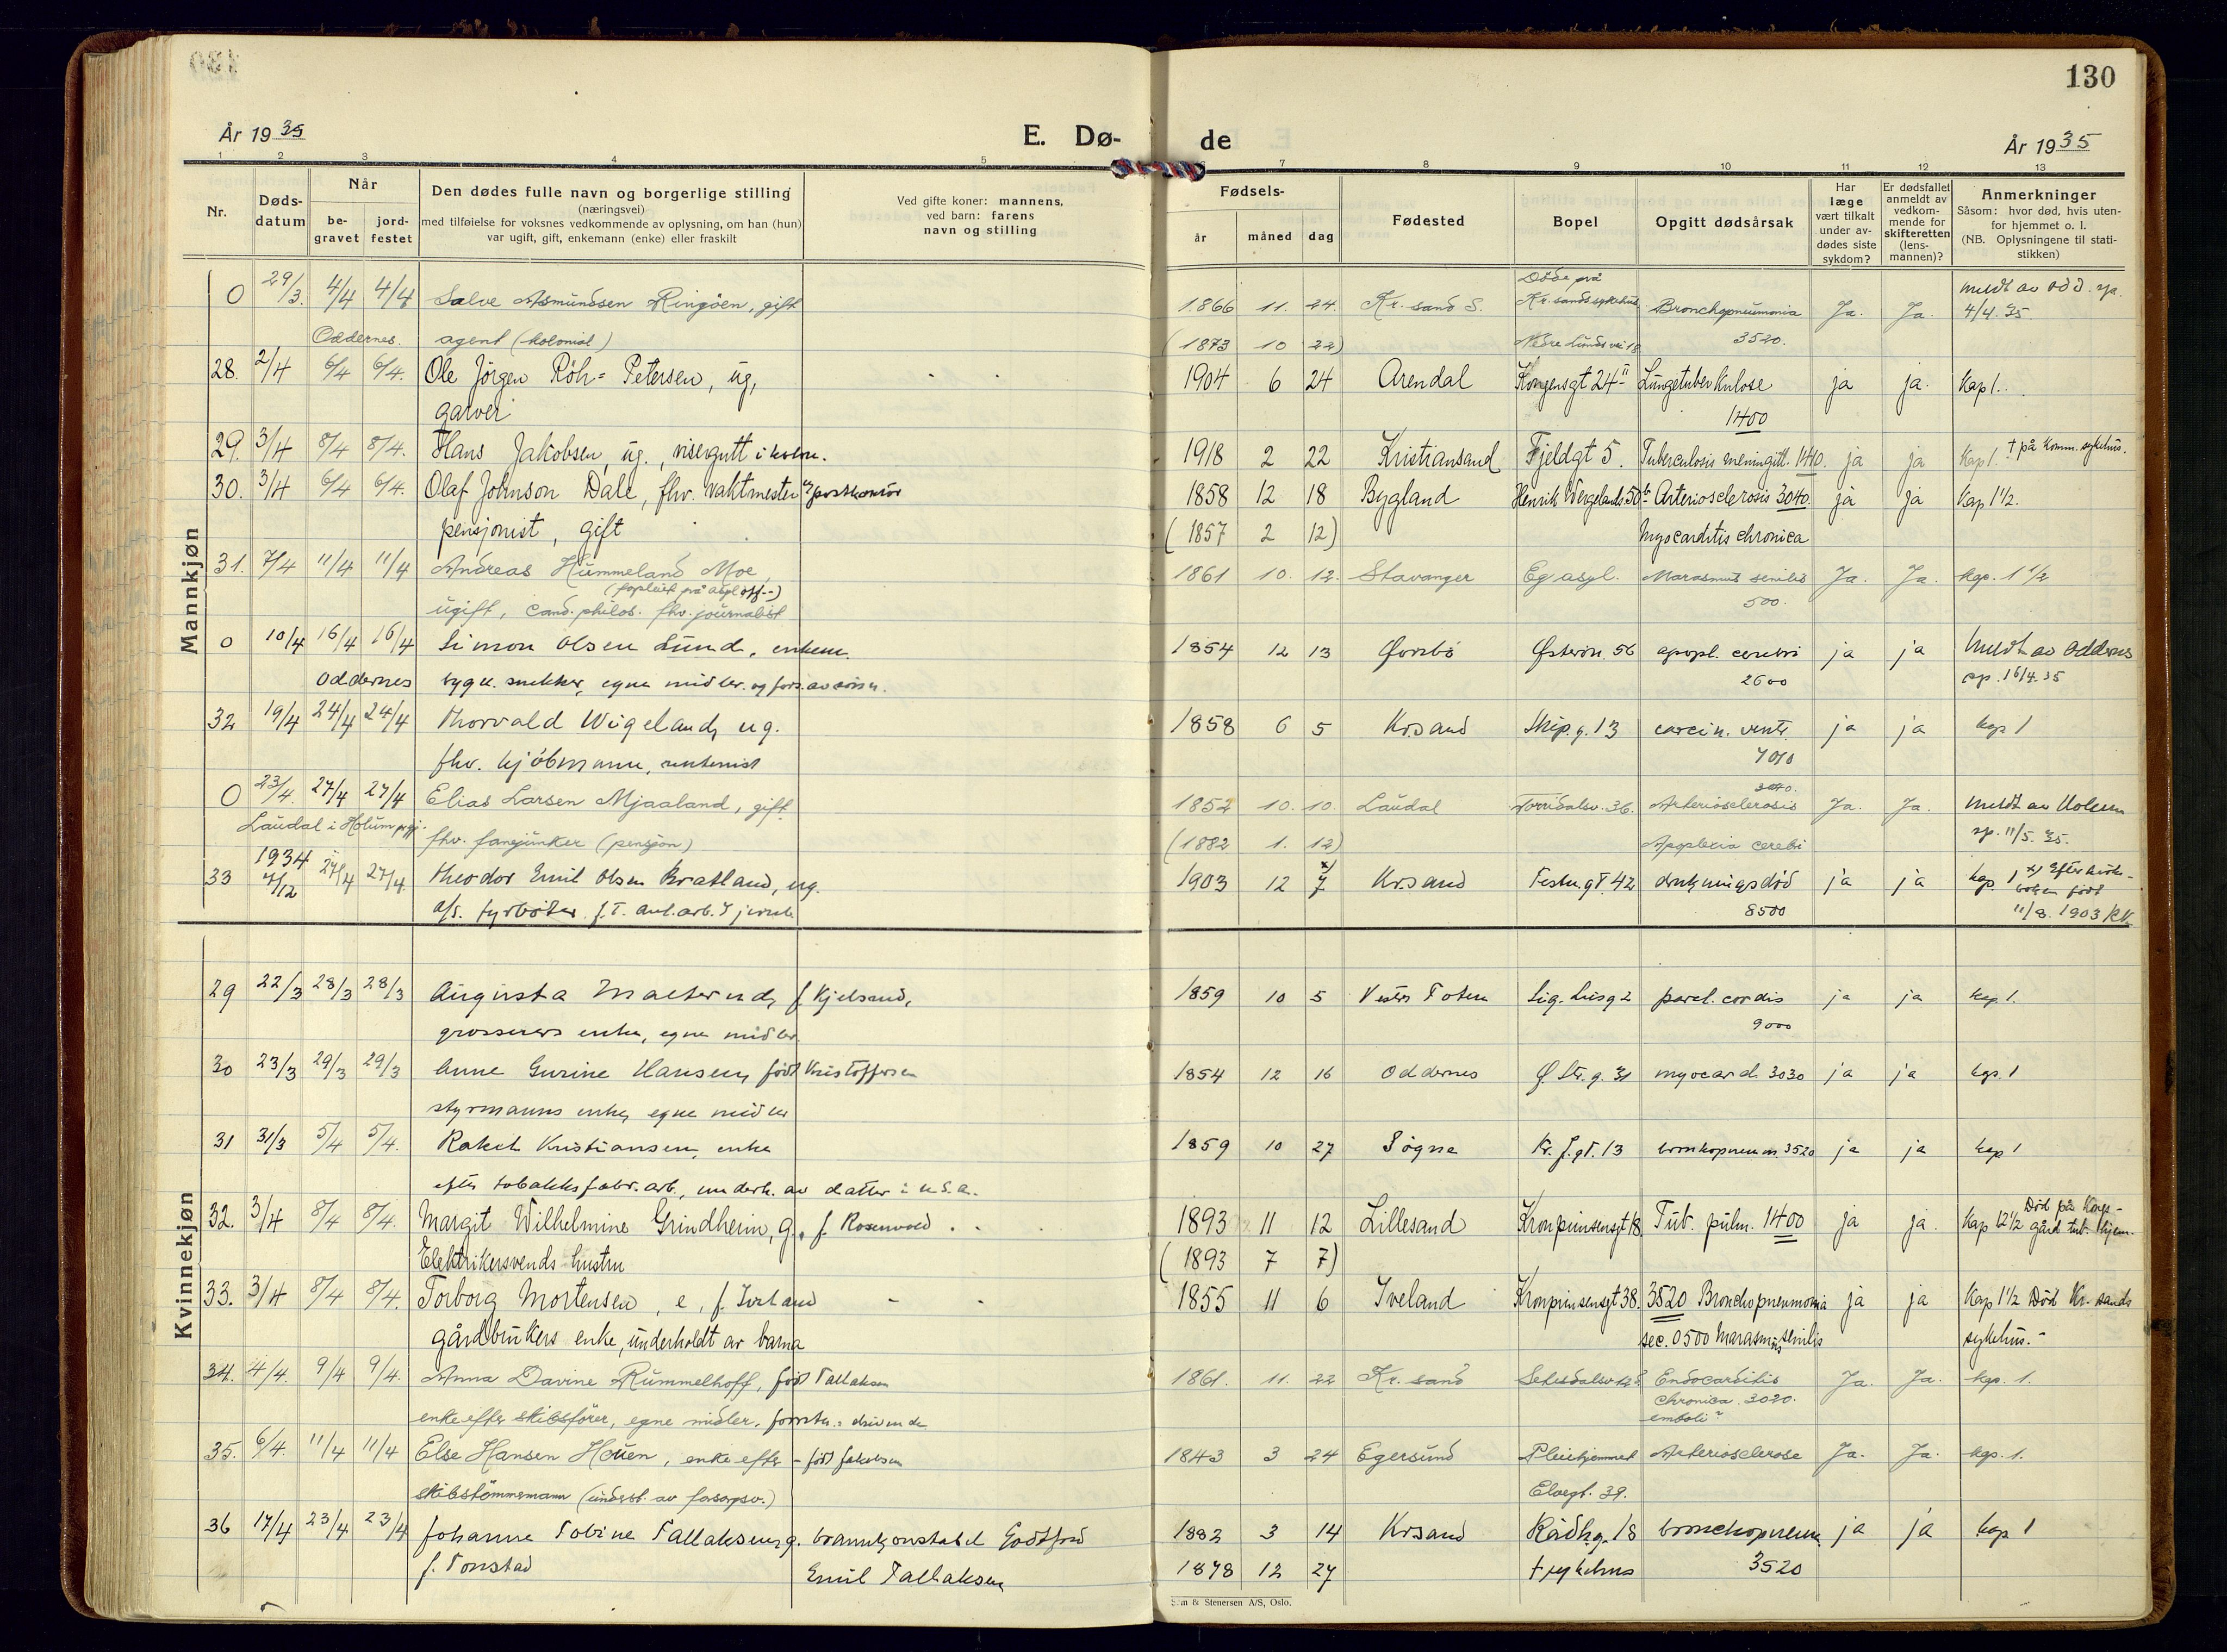 130
År 1935
E. Dø-
de
År 1935
1 2 3 4 5 6 7 8 9 10 11 12 13
Nr.
Døds-
datum
Når
be-
gravet
jord-
festet
Den dødes fulle navn og borgerlige stilling
(næringsvei)
med tilføielse for voksnes vedkommende av oplysning, om han (hun)
var ugift, gift, enkemann (enke) eller fraskilt
Ved gifte koner: mannens,
ved barn: farens
navn og stilling
Fødsels-
år
måned
dag
Fødested
Bopel
Opgitt dødsårsak
Har
læge
vært tilkalt
under av-
dødes siste
sykdom?
Er dødsfallet
anmeldt av
vedkom-
mende for
skifteretten
(lens-
mannen)?
Anmerkninger
Såsom: hvor død, hvis uten-
for hjemmet o. l.
(NB. Oplysningene til stati-
stikken)
Mannkjøn
0 29/3. 4/4 4/4 Salve Asmundsen Ringöen, gift 1866 11. 24. Kr.sand S. Döde på Kr.sands sykehus Bronchopneumonia Ja. Ja. meldt av Odd. sp. 4/4.35.
Oddernes. agent (kolonial) (1873 10 22) Nedre Lunds vei 18 3520.
28. 2/4 6/4 6/4. Ole Jörgen Röh=Petersen, ug, 1904 6 24 Arendal Kongensgt 24 II Lungetuberkulose ja ja. Kap 1.
garver 1400
29. 3/4 8/4 8/4. Hans Jakobsen, ug., visergutt i kolon. 1918 2 22 Kristiansand Fjeldgt 5. Tuberculosis meningitt. 1410. ja ja Kap 1. † på Komm. sykehus.
30. 3/4 6/4 6/4. Olaf Johnson Dale, fhv. vaktmester v/postkontor 1858 12 18 Bygland Henrik Wergelands 50 b Arteriosclerosis 3040. ja ja Kap 1½.
pensjonist, gift (1857 2 12) Myocarditis chronica
31. 7/4 11/4 11/4 Andreas Hummeland Moe, 1861 10. 12. Stavanger Eg asyl. Marasmus senilis Ja. Ja. kap. 1 1/2
(forpleiet på asyl off--)
ugift, cand. philos. fhv. journalist 500.
0 10/4 16/4 16/4 Simon Olsen Lund, enkem. 1854 12 13 Øvrebö Østerv. 56 apopl. cerebri ja ja Meldt av Oddernes
Oddernes bygn. snekker, egne midler. 2600 sp. 16/4.35
32 19/4 24/4 24/4 Thorvald Wigeland, ug. 1858 6 5 Kr.sand Skip.g. 13 carcin. ventr. ja ja kap 1
fhv. kjöbmann, rentenist
0 23/4. 27/4 27/4 Elias Larsen Mjaaland, gift 1852 10. 10. Laudal Torridalsv. 36. 3040. Arteriosclerosis Ja. Ja. meldt av Holum
Laudal i Holum prgj. fhv. fanejunker (pensjon) (1882 1. 12) Apoplexia cerebri sp. 11/5.35.
33 1934 4/12 27/4 27/4. Theodor Emil Olsen Bratland, ug. 1903 12 x) 7 Kr.sand Festn.gt. 42 drukningsdöd ja ja kap. 1 x) Efter kirke-
fyrböter 8500 boken född
11/8.1903
Kvinnekjøn
29 22/3 28/3 28/3 Augusta Maeterud, f. Kjelsrud, 1859 10 5 Vestre Toten parel. cordis ja ja kap 1.
grosserers enke, egne midler. 9000
30 23/3 29/3 29/3 Anne Gurine Hansen, född Kristoffersen 1854 12 16 Oddernes Ø. Str.g. 31 myocard. 3030 ja ja kap. 1
styrmanns enke, egne midler
31 31/3 5/4 5/4. Rakel Kristiansen, enke 1859 10 27 Sögne Kr. f.gt. 13 bronkopneum. 3520 ja ja kap 1
efter tobakksfabr.arb., underh. av datter i U.S.A.
32. 3/4 8/4 8/4. Margit Wilhelmine Grindheim, g., f. Rosenvold 1893 11 12 Lillesand Kronprinsensgt 18. Tub. pulm. 1400 ja ja. Kap 12½ Död på Konge-
gård tub. hjem.
Elektrikersvends hustru (1893 7 7)
33. 3/4 8/4 8/4. Torborg Mortensen, e, f. Iveland 1855 11 6 Iveland Kronprinsensgt 38. 3520 Bronchopneumonia ja ja Kap 1½ Död Kr.sands
gårdbrukers enke, underholdt av barna sec. 0500 Marasmus senilis sykehus.-
34. 4/4. 9/4 9/4. Anna Davine Rummelhoff, född Tallaksen 1861. 11. 22 Kr.sand Setesdalsv. Endocarditis Ja. Ja. kap. 1.
enke efter skibsförer, egne midler. chronica. 3020.
emboli?
35. 6/4. 11/4 11/4 Else Hansen Houen, enke efter - född Jakobsen 1843 3 24 Egersund Pleiehjemmet Arteriosclerose Ja. Ja. kap. 1.
skibstömmermann (underst. av forsorgsv.) Elvegt. 39.
36 17/4 23/4 23/4 Johanne Tobine Tallaksen, g. brannkonstabel Godtfred 1882 3 14 Kr.sand Rådh.g. 18 bronchopneum. ja ja kap 1
f. Tonstad Emil Tallaksen 1878 12 27 † sykehus 3520
Sem & Stenersen A/S, Oslo.